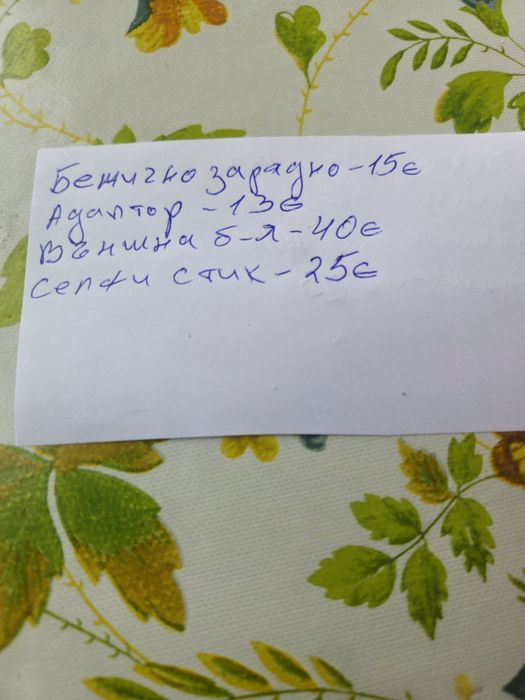 Безжично зарядно - 15€
Адаптор - 13€
Външна б-я - 40€
Селфи стик - 25€